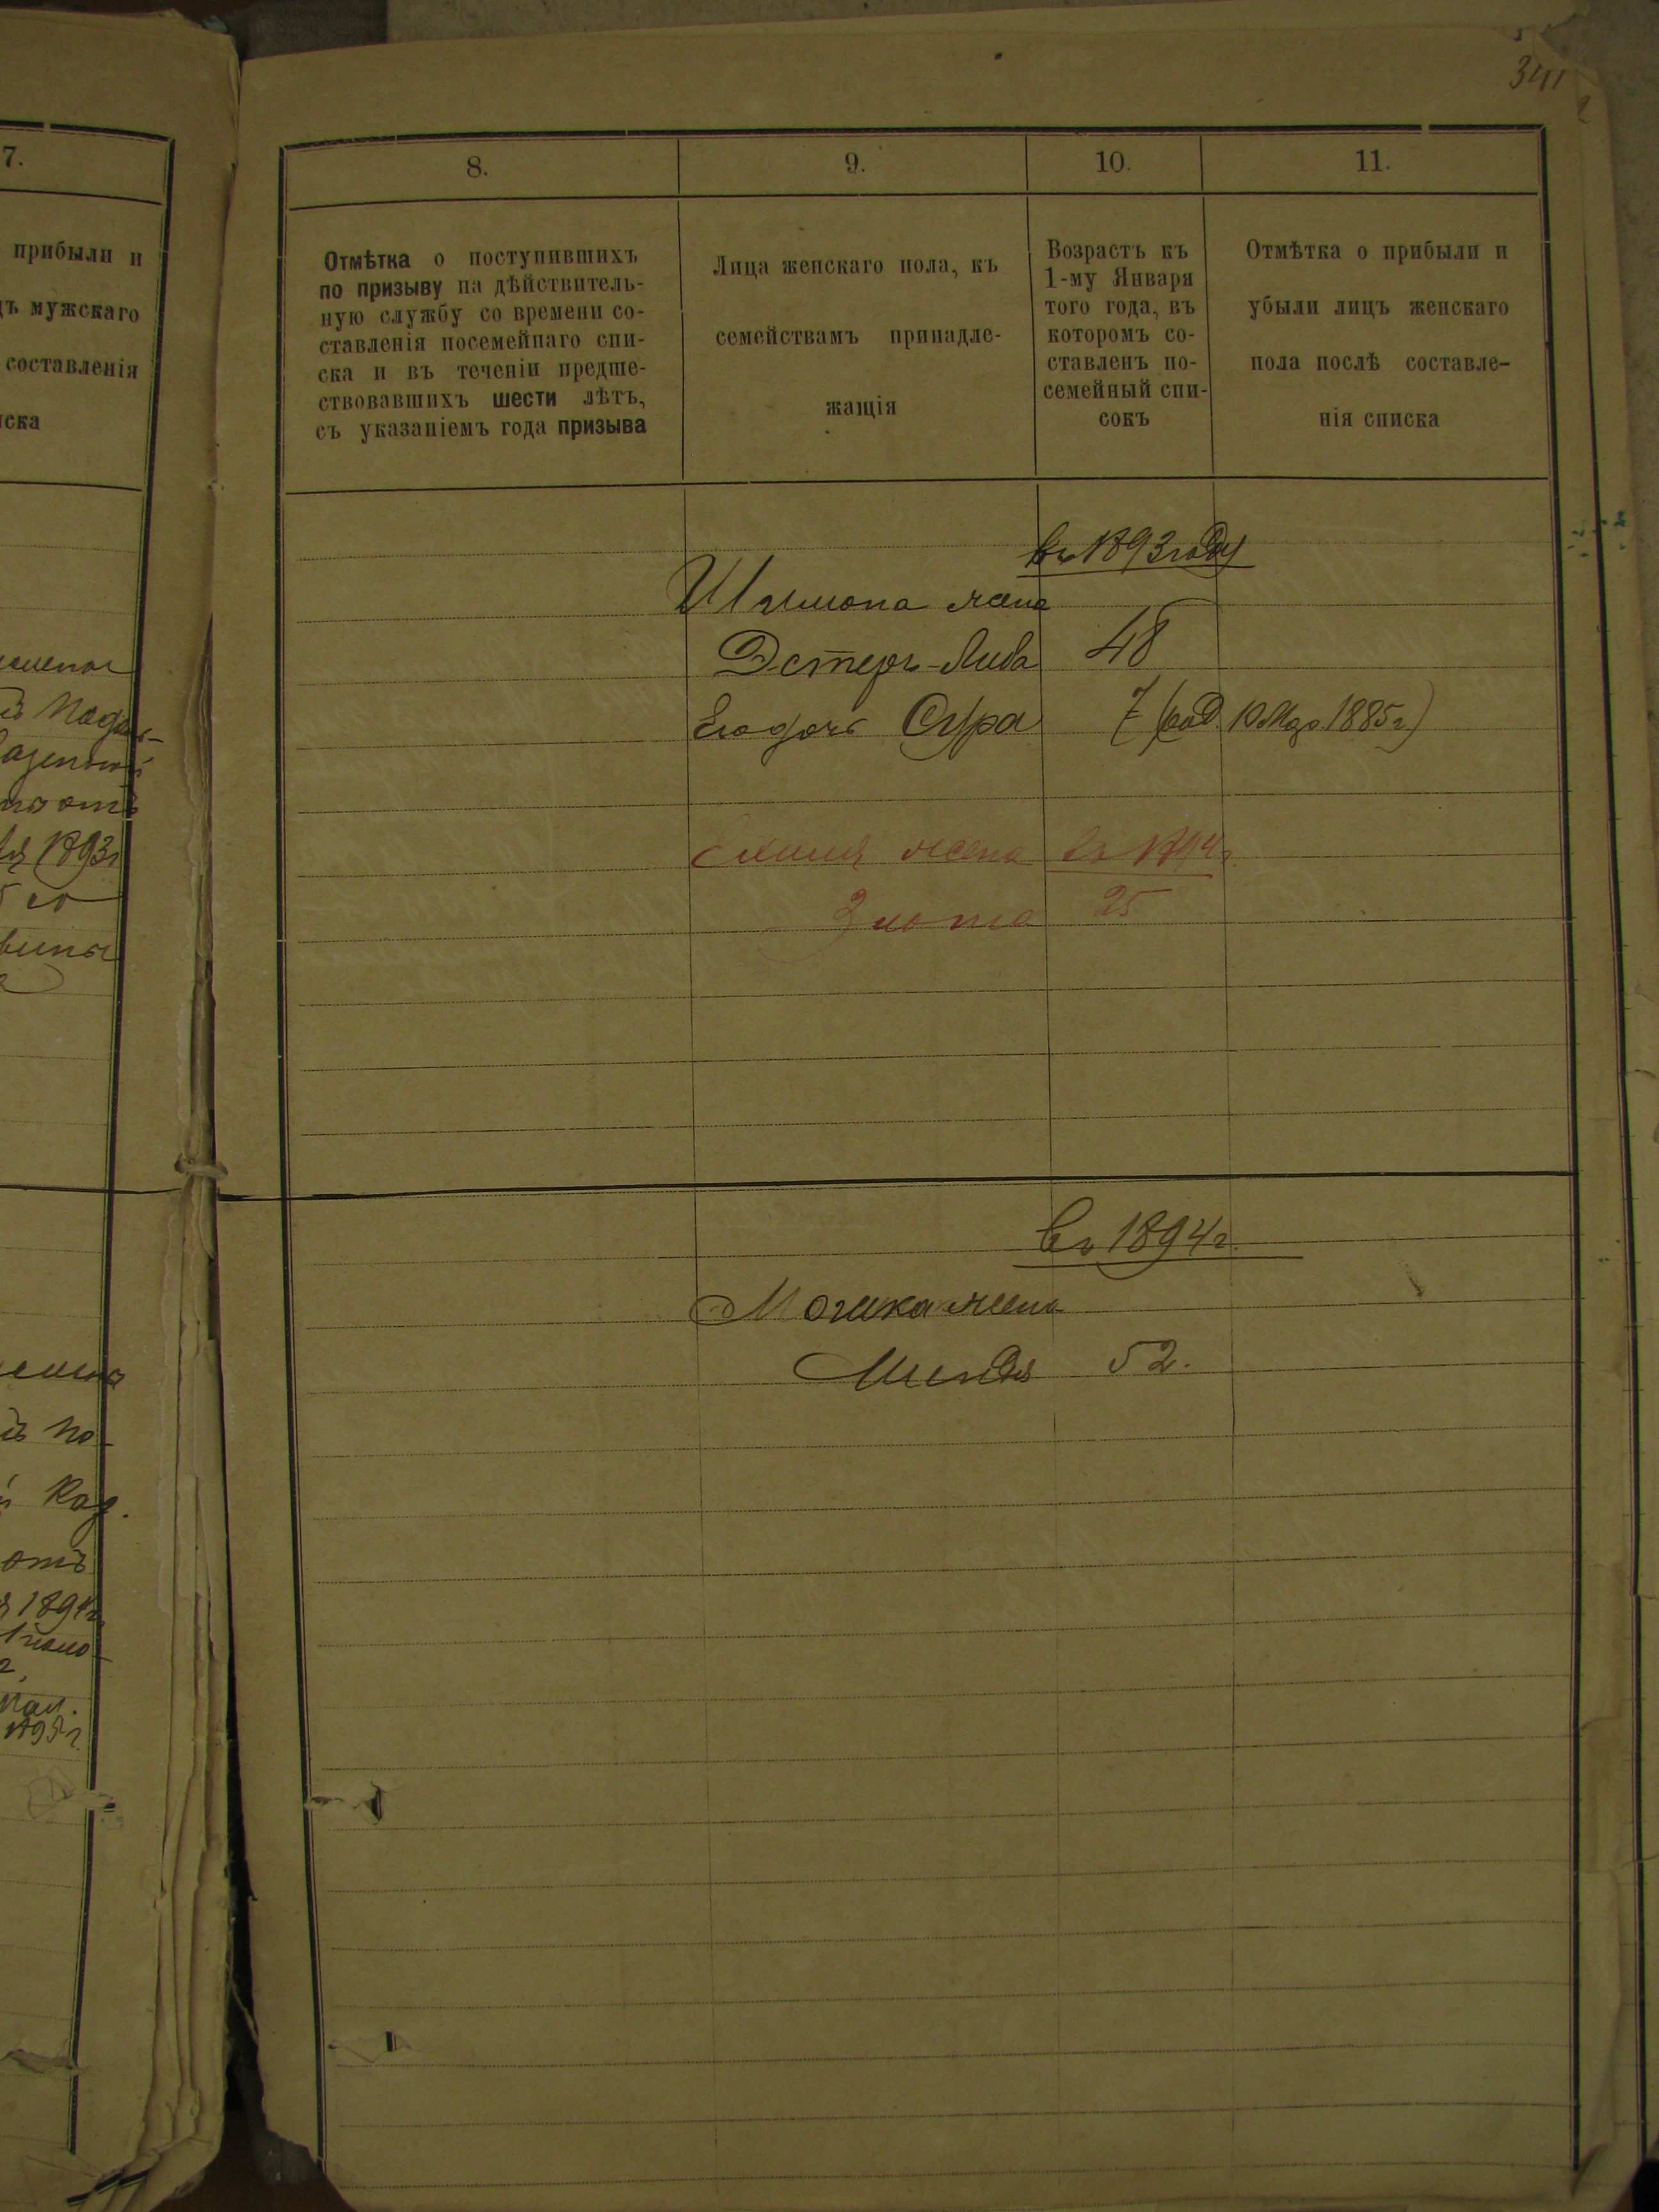 341
7.
прибыли и
мужскаго
составленія
1893г
отъ
8.
9.
10.
11.
Отмѣтка о поступившихъ
по призыву на дѣйствитель-
ную службу со времени со-
ставленія посемейнаго спи-
ска и въ теченіи предше-
ствовавшихъ шести лѣтъ,
съ указаніемъ года призыва
Лица женскаго пола, къ
семействамъ принадле-
жащія
Возрастъ къ
1-му Января
того года, въ
которомъ со-
ставленъ по-
семейный спи-
сокъ
Отмѣтка о прибыли и
убыли лицъ женскаго
пола послѣ составле-
нія списка
въ 1893 году
жена
Эстеръ-Либа 48
Его дочь Сура 7 (род. 10 Мар. 1885 г.)
жена въ 1894 г.
Злота 25
въ 1894 г.
Мошка жена
Миндя 52.